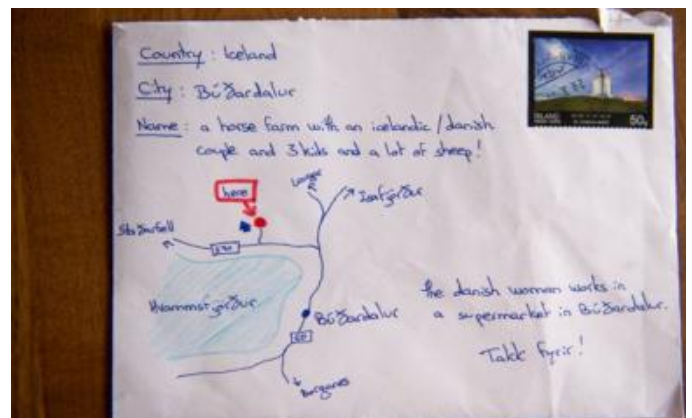 Country : Iceland
City : Búðardalur
Name : a horse farm with an icelandic/danish
couple and 3 kids and a lot of sheep!
here
Laugar
Ísafjörður
Staðarfell
590
Hvammsfjörður
Búðardalur
60
Borganes
the danish woman works in
a supermarket in Búðardalur.
Takk fyrir!
ÍSLAND
50g